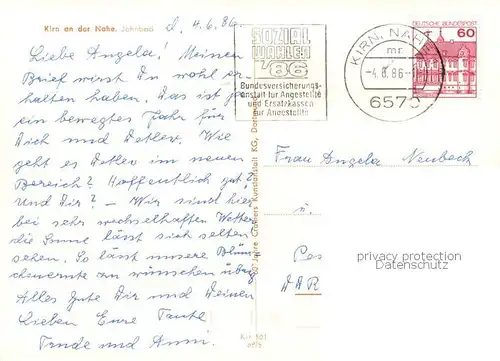 Kirn an der Nahe. Jahnbad
d. 4.6.86
Liebe Angela! Meinen
Brief wirst Du wohl er-
halten haben. Das ist ja
ein bewegtes Jahr für
Dich und Detlev. Wie
geht es Detlev im neuen
Bereich? Hoffentlich gut?
Und Dir? - Wir sind hier
bei sehr wechselhaften Wetter
die Sonne lässt sich selten
sehen. So lässt unsere
zu wünschen übrig
Alles Gute Dir und Deinen
Lieben Eure Tante
Trude und Anni.
SOZIAL
WAHLEN
'86
Bundesversicherungs-
anstalt für Angestellte
und Ersatzkassen
für Angestellte
KIRN, NAHE
mr
-4.6.86-
6570
DEUTSCHE BUNDESPOST
60
Jahre Cramers Kunstanstalt KG, Dortmund
Frau Angela Neubeck
u.
DAR
PRIVATSPHÄRE
Datenschutz
Protection of Data
Kir 501